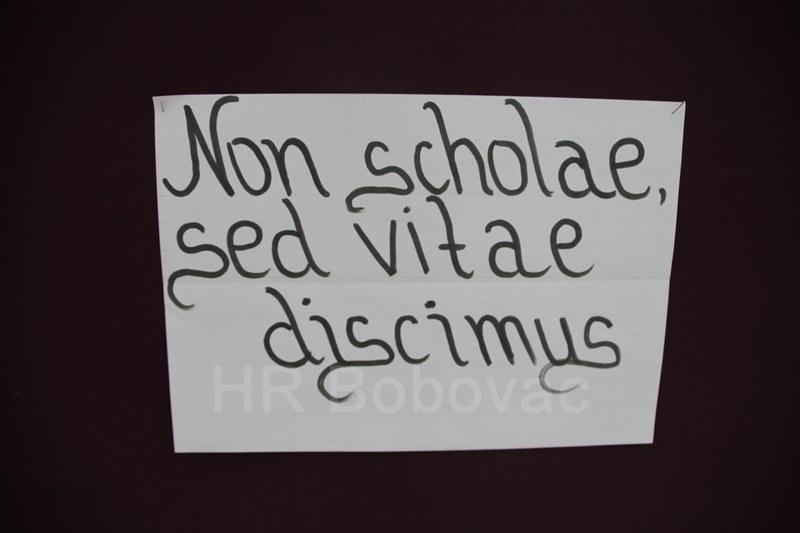 Non scholae,
sed vitae
discimus
HR Bobovac